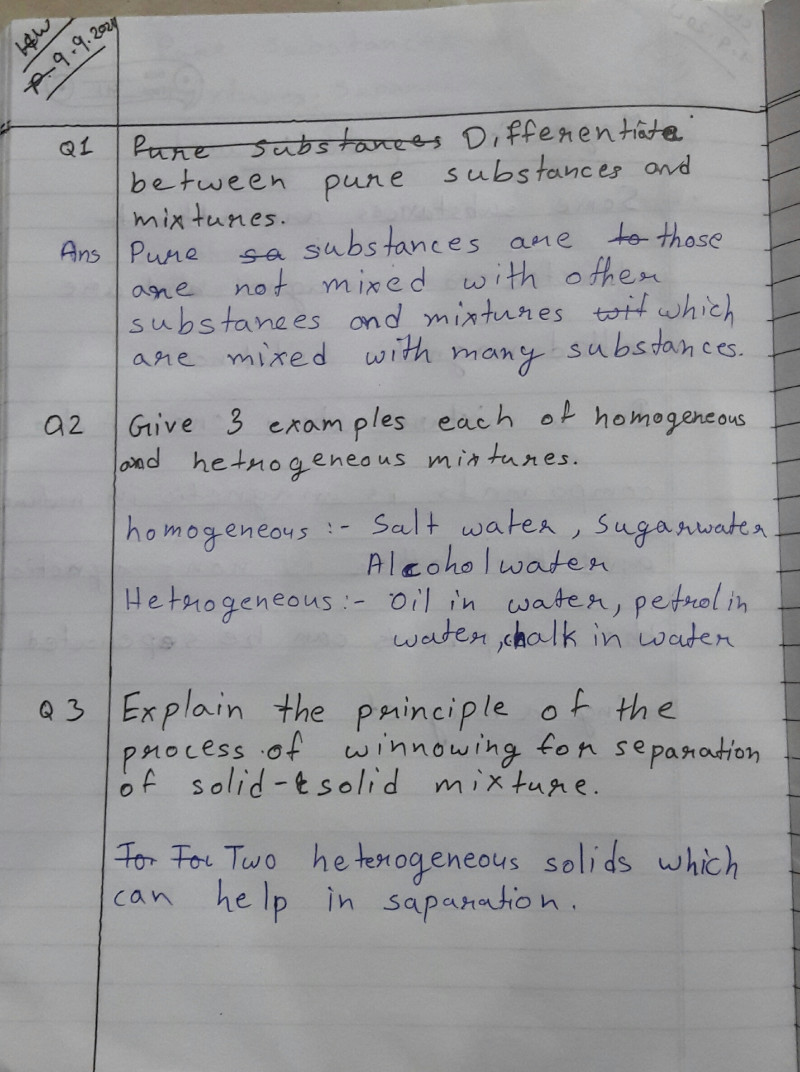 H/W
D-9.9.2024
Q1 Pure substances Differentiate
between pure substances and
mixtures.
Ans Pure sa substances are to those
are not mixed with other
substances and mixtures wit which
are mixed with many substances.
Q2 Give 3 examples each of homogeneous
and hetrogeneous mixtures.
homogeneous :- Salt water, Sugarwater
Alcohol water
Hetrogeneous :- Oil in water, petrol in
water, chalk in water
Q3 Explain the principle of the
process of winnowing for separation
of solid-solid mixture.
For For Two heterogeneous solids which
can help in saparation.